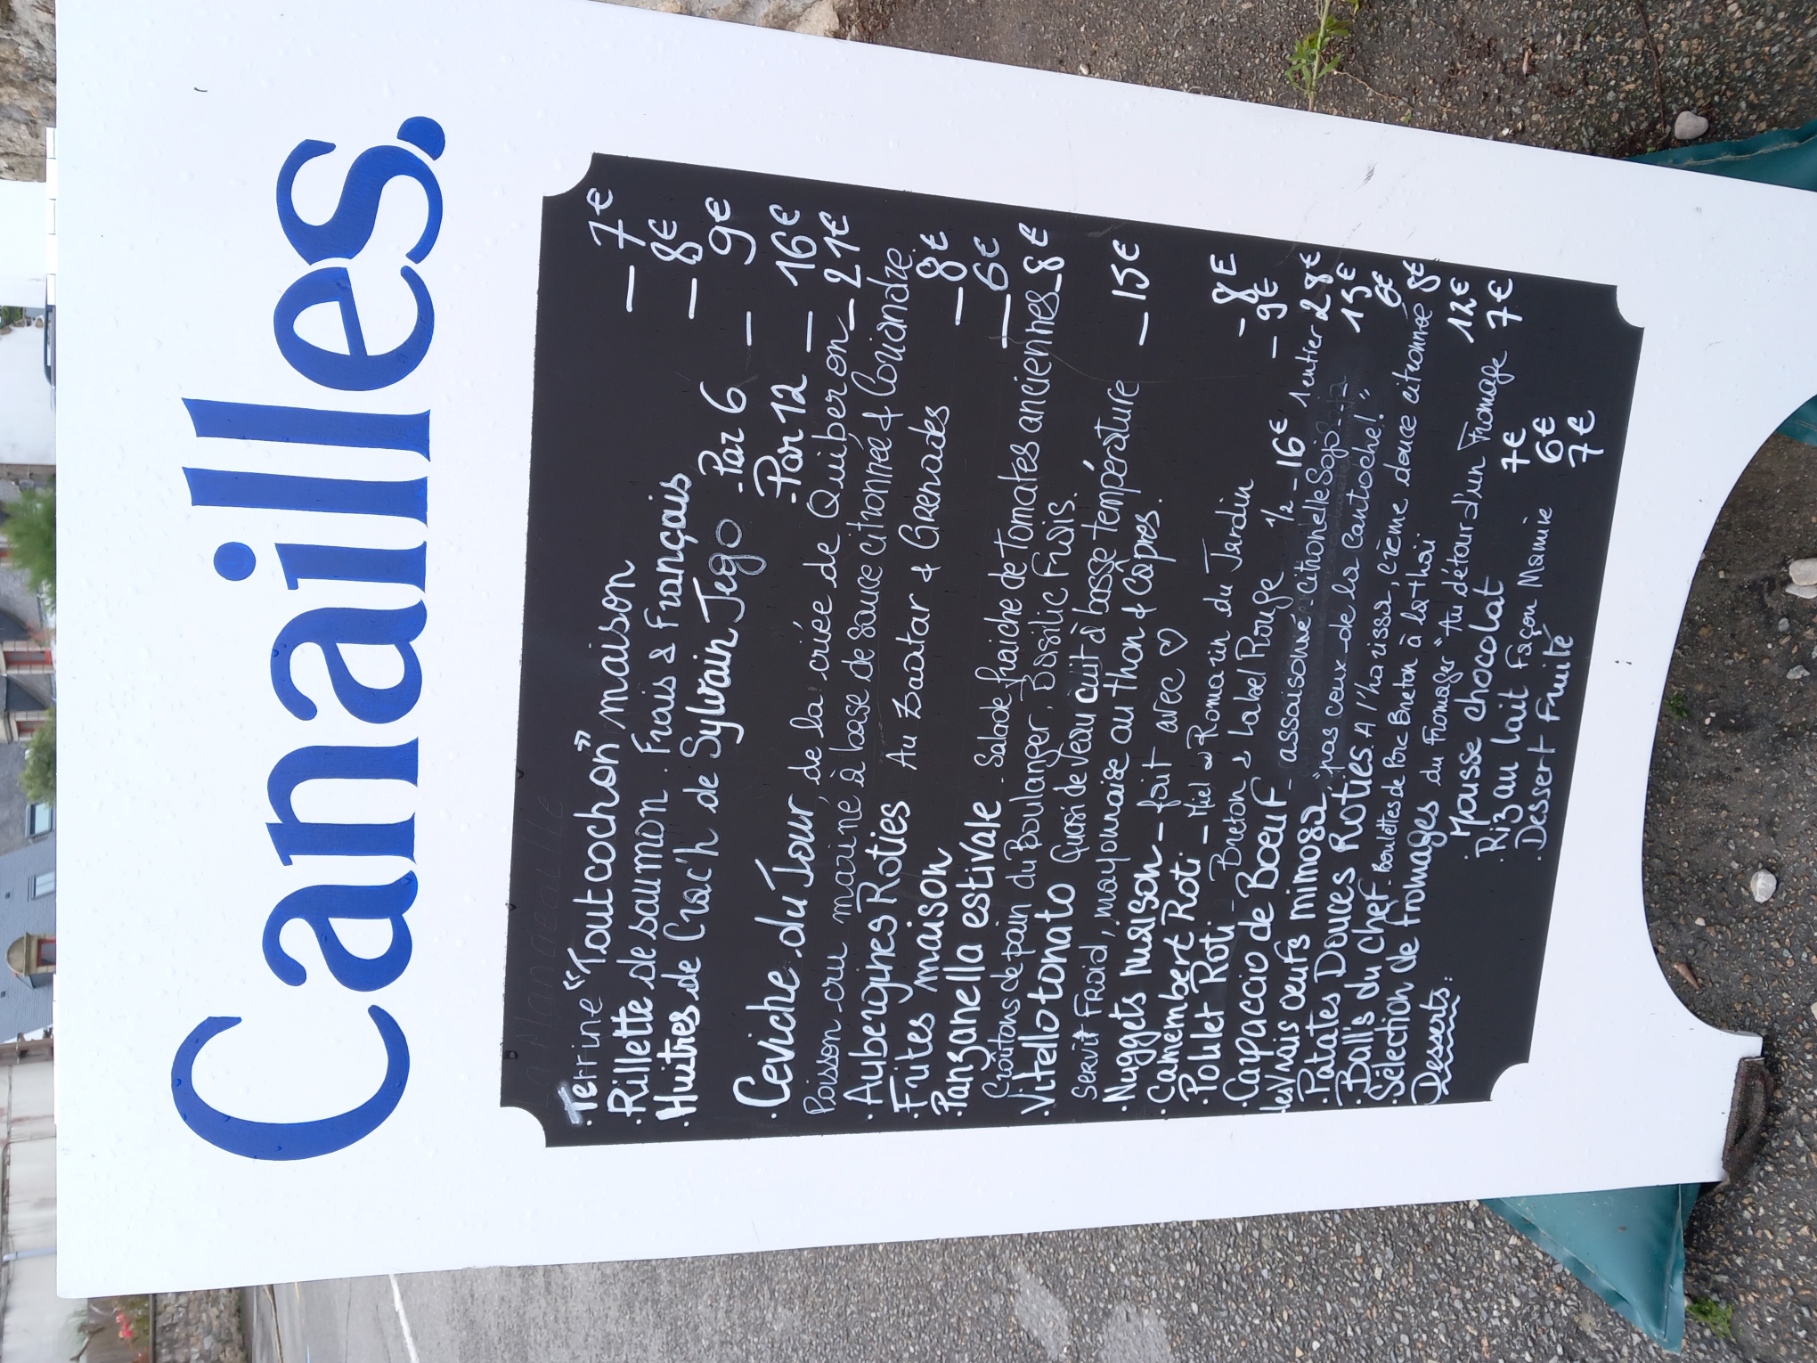 Canailles.
. Terrine "Tout cochon" maison — 7€
. Rillette de saumon. Frais & Français — 8€
. Huîtres de Crac'h de Sylvain Jego - Par 6 — 9€
- Par 12 — 16€
. Ceviche du Jour, de la criée de Quiberon — 21€
Poisson cru mariné à base de sauce citronnée & Coriandre.
. Aubergines Roties Au Zaatar & Grenades — 8€
. Frites maison — 6€
. Panzanella estivale - Salade fraiche de Tomates anciennes — 8€
Croûtons de pain du Boulanger, Basilic Frais.
. Vitello tonato Quasi de Veau cuit à basse température — 15€
servit Froid, mayonnaise au thon & Capres.
. Nuggets maison - fait avec ♡ - 8€
. Camembert Roti - Miel & Romarin du Jardin — 9€
. Poulet Roti - Breton & Label Rouge 1/2 - 16€ 1 entier 28€
. Carpaccio de Boeuf - assaisonné Citronelle Soja 15€
. les Vrais œufs mimosa, "pas ceux de la Cantoche!" 6€
. Patates Douces Roties A l'harissa, crème douce citronnée 8€
. Ball's du chef Boulettes de Porc Breton à la thaï 12€
. Sélection de fromages du Fromager "Au détour d'un Fromage 7€
Desserts:
. Mousse chocolat 7€
. Riz au lait Façon Mamie 6€
. Dessert Fruité 7€